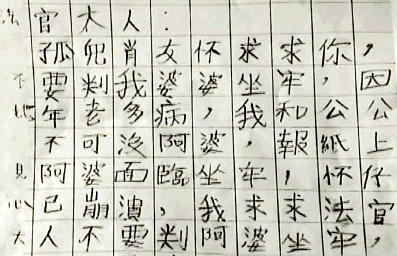 法官大人：
孤兒肖女怀求求你，
不要判我婆婆坐牢，因
她年老多病，我和公公
不可沒阿婆，報紙上
見阿婆面臨坐牢，怀仔
心已崩潰，我求求法官
大人不要判阿婆坐牢，